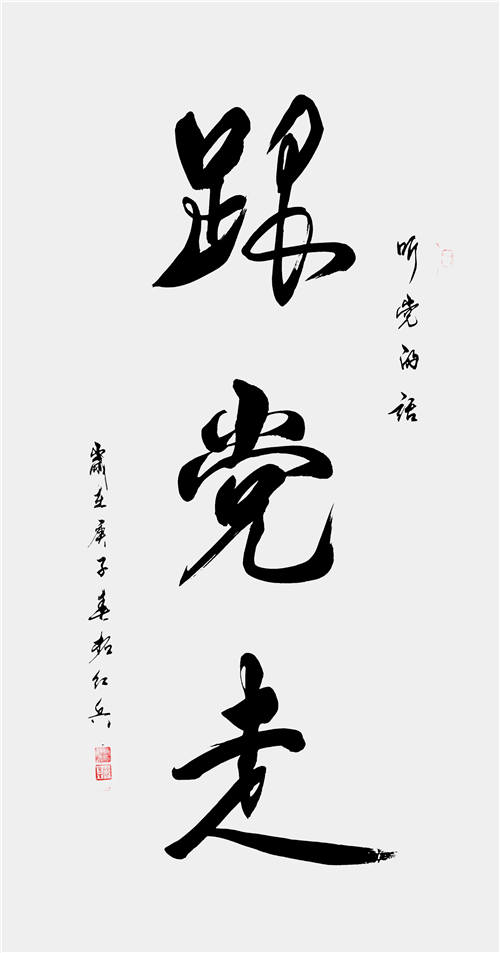 听党的话
跟党走
在庚子春红兵